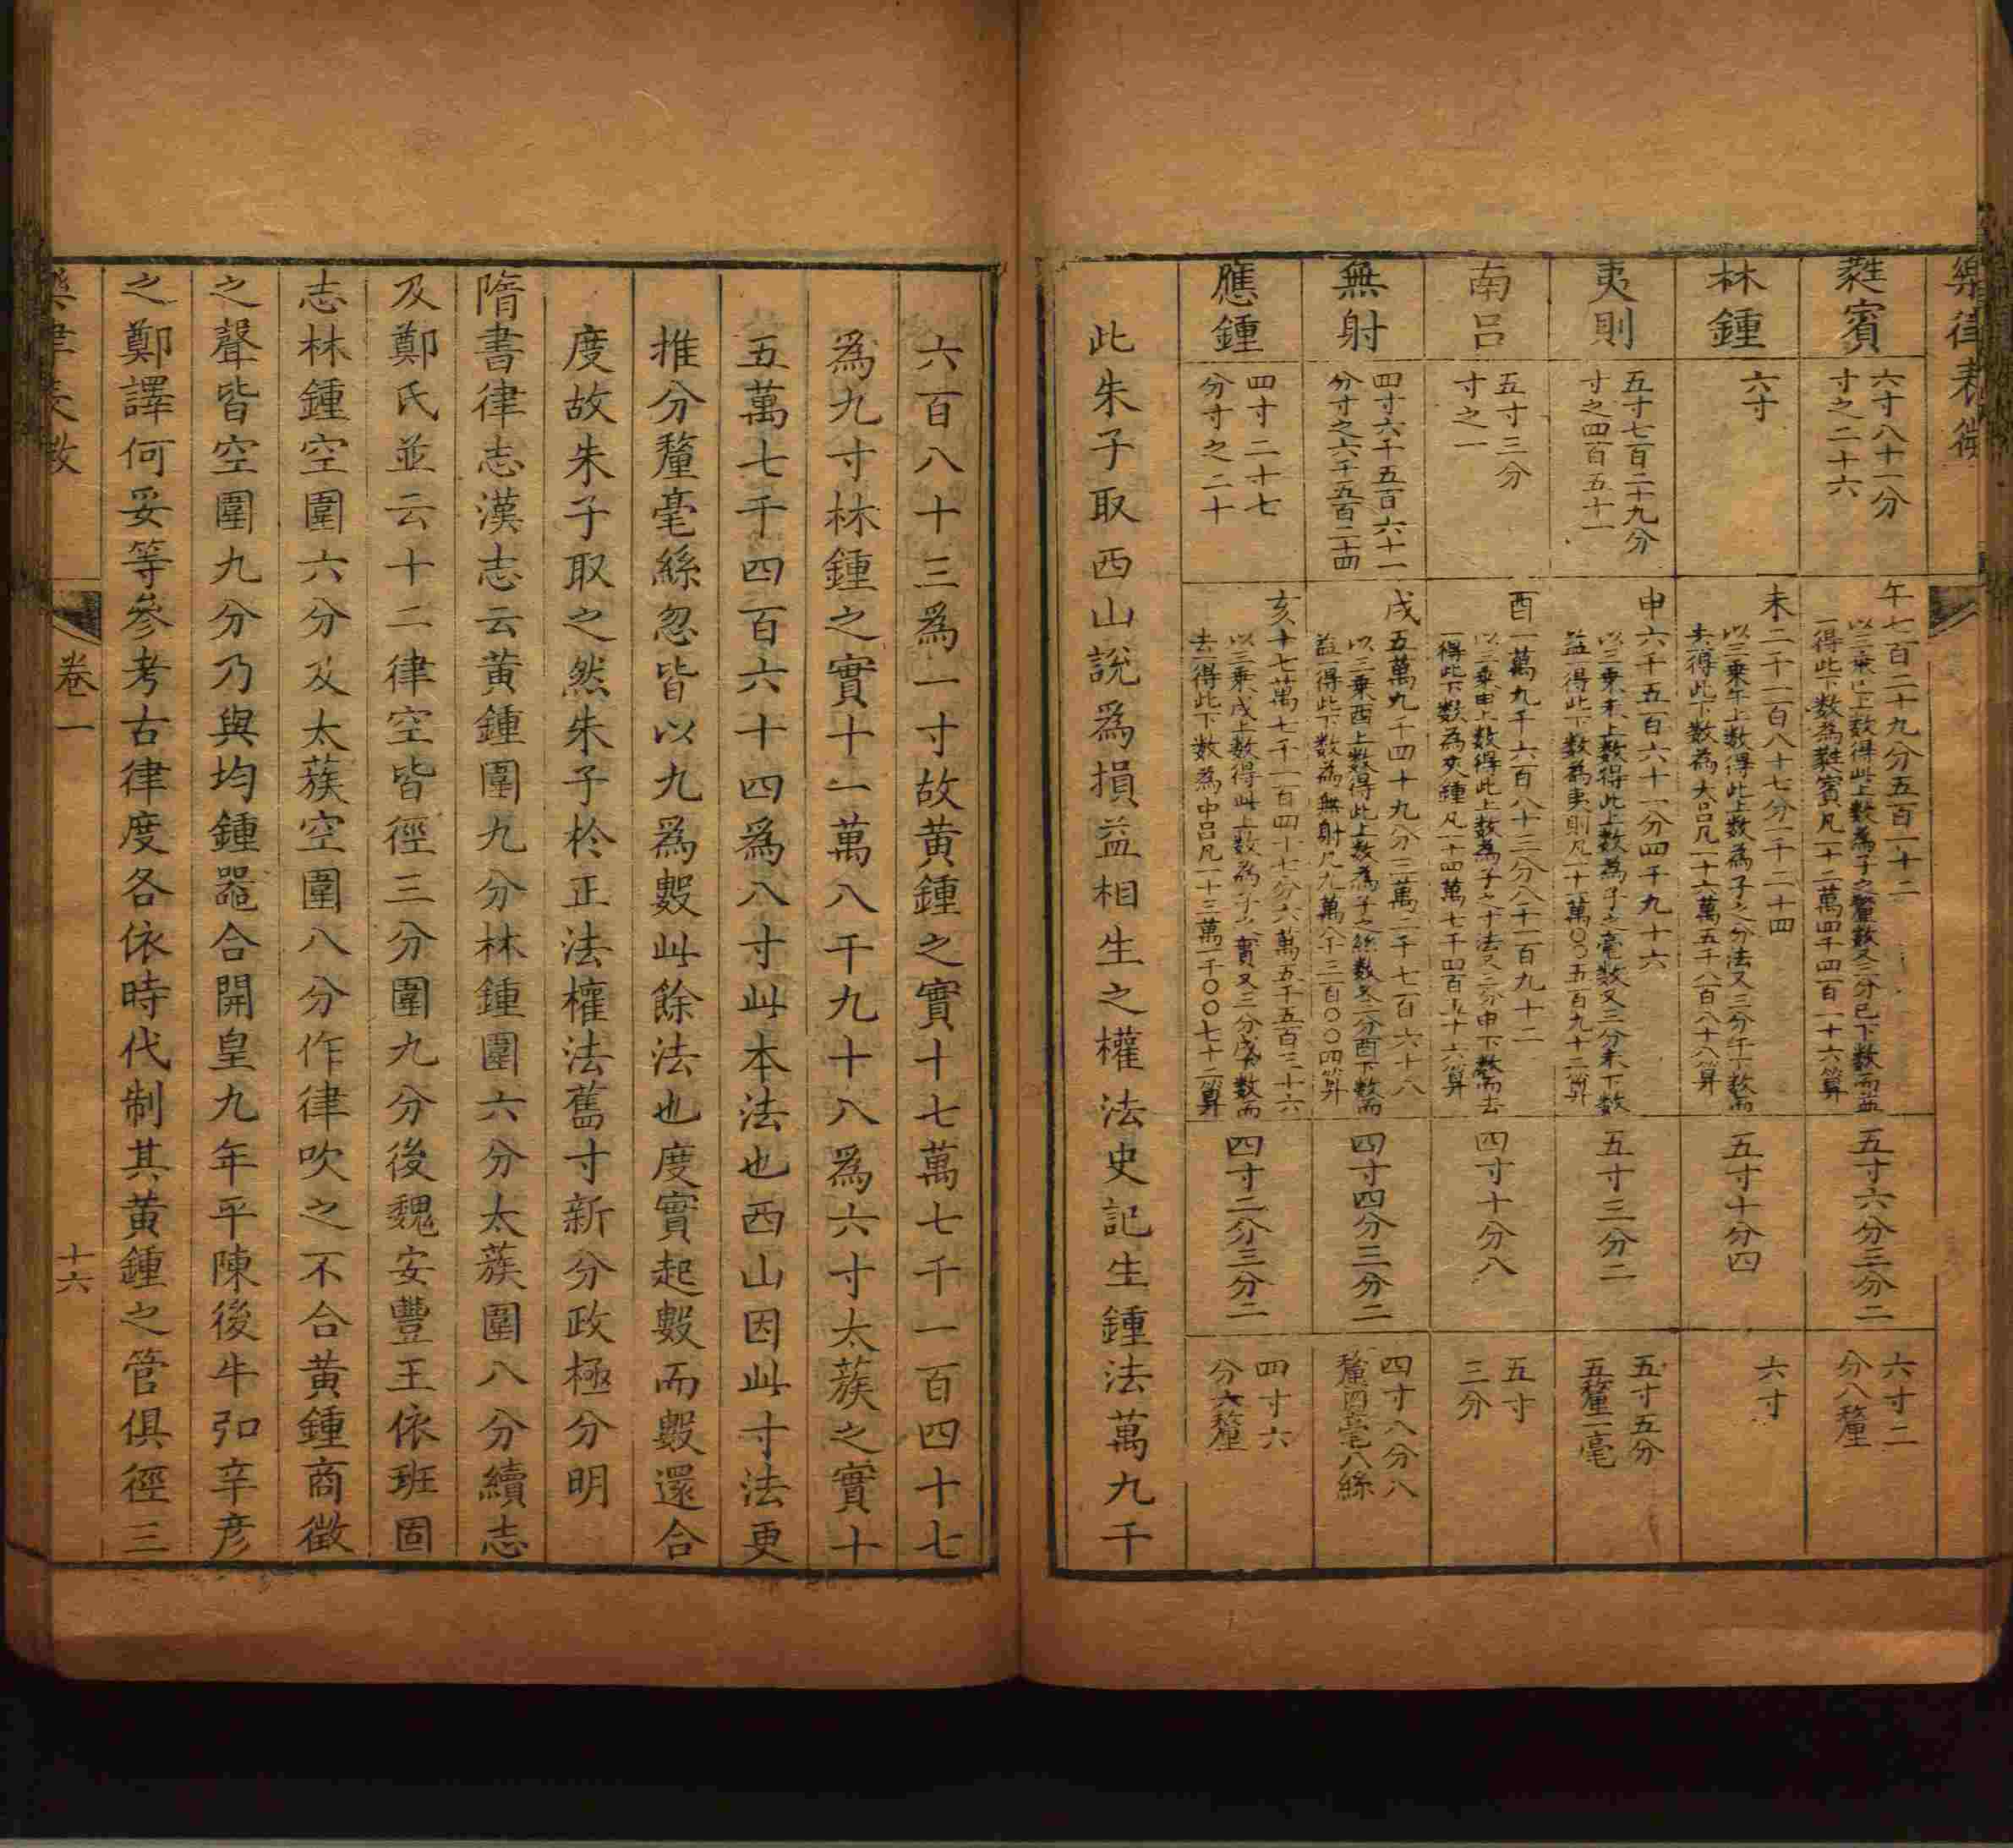 樂律表微
蕤賓
六寸八十一分
寸之二十六
午七百二十九分五百一十二
以三乘巳上數得此上數為子之釐數又三分巳下數而益
一得此下數為蕤賓凡一十二萬四千四百一十六算
五寸六分三分二
六寸二
分八釐
林鍾
六寸
未二千一百八十七分一千二十四
以三乘午上數得此上數為子之分法又三分午下數而
去一得此下數為大呂凡一十六萬五千八百八十八算
五寸十分四
六寸
夷則
五寸七百二十九分
寸之四百五十一
申六千五百六十一分四千九十六
以三乘未上數得此上數為子之毫數又三分未下數
益一得此下數為夷則凡一十一萬〇〇五百九十二算
五寸三分二
五寸五分
五釐一毫
南呂
五寸三分
寸之一
酉一萬九千六百八十三分八千一百九十二
以三乘申上數得此上數為子之寸法又三分申下數而去
一得此下數為夾鍾凡一十四萬七千四百五十六算
四寸十分八
五寸
三分
無射
四寸六千五百六十一
分寸之六千五百二十四
戌五萬九千四十九分三萬二千七百六十八
以三乘酉上數得此上數為子之絲數又三分酉下數而
益一得此下數為無射凡九萬八千三百〇〇四算
四寸四分三分二
四寸八分八
釐四毫八絲
應鍾
四寸二十七
分寸之二十
亥十七萬七千一百四十七分六萬五千五百三十六
以三乘戌上數得此上數為子之實又三分戌下數而
去一得此下數為中呂凡一十三萬一千〇〇七十二算
四寸二分三分二
四寸六
分六釐
此朱子取西山說為損益相生之權法史記生鍾法萬九千
六百八十三爲一寸故黃鍾之實十七萬七千一百四十七
爲九寸林鍾之實十一萬八千九十八爲六寸太蔟之實十
五萬七千四百六十四爲八寸此本法也西山因此寸法更
推分釐毫絲忽皆以九爲數此餘法也度實起數而數還合
度故朱子取之然朱子於正法權法舊寸新分政極分明
隋書律志漢志云黃鍾圍九分林鍾圍六分太蔟圍八分續志
及鄭氏並云十二律空皆徑三分圍九分後魏安豐王依班固
志林鍾空圍六分及太蔟空圍八分作律吹之不合黃鍾商徵
之聲皆空圍九分乃與均鍾器合開皇九年平陳後牛弘辛彥
之鄭譯何妥等參考古律度各依時代制其黃鍾之管俱徑三
樂律表微
卷一
十六